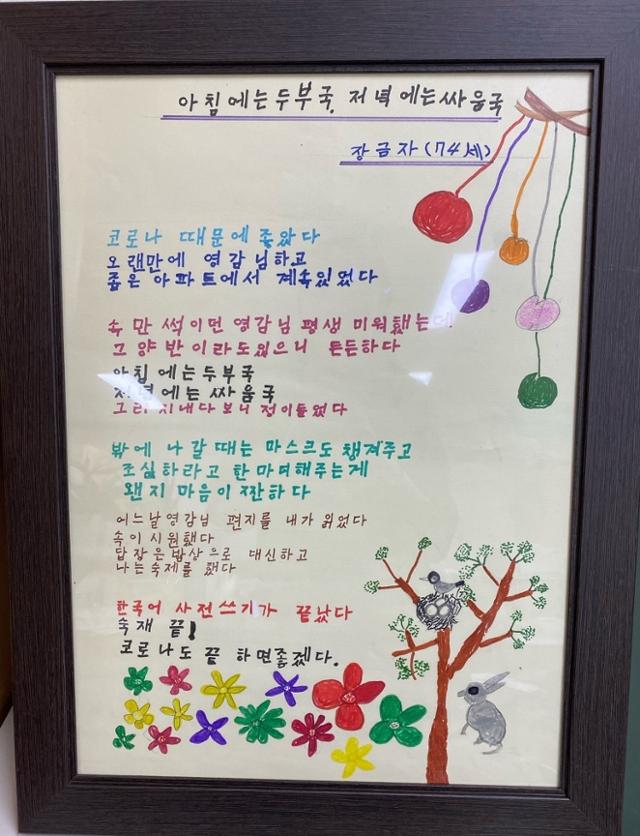 아침에는두부국, 저녁에는싸움국
장금자(74세)
코로나 때문에 좋았다
오랜만에 영감님하고
좁은 아파트에서 계속있었다
속만 썩이던 영감님 평생 미워했는데
그 양반이라도있으니 든든하다
아침에는두부국
저녁에는싸움국
그리 지내다보니 정이들었다
밖에 나갈때는 마스크도 챙겨주고
조심하라고 한마디해주는게
왠지 마음이 짠하다
어느날영감님 편지를 내가 읽었다
속이 시원했다
답장은밥상으로 대신하고
나는숙제를 했다
한국어 사전쓰기가 끝났다
숙재 끝!
코로나도끝 하면좋겠다.